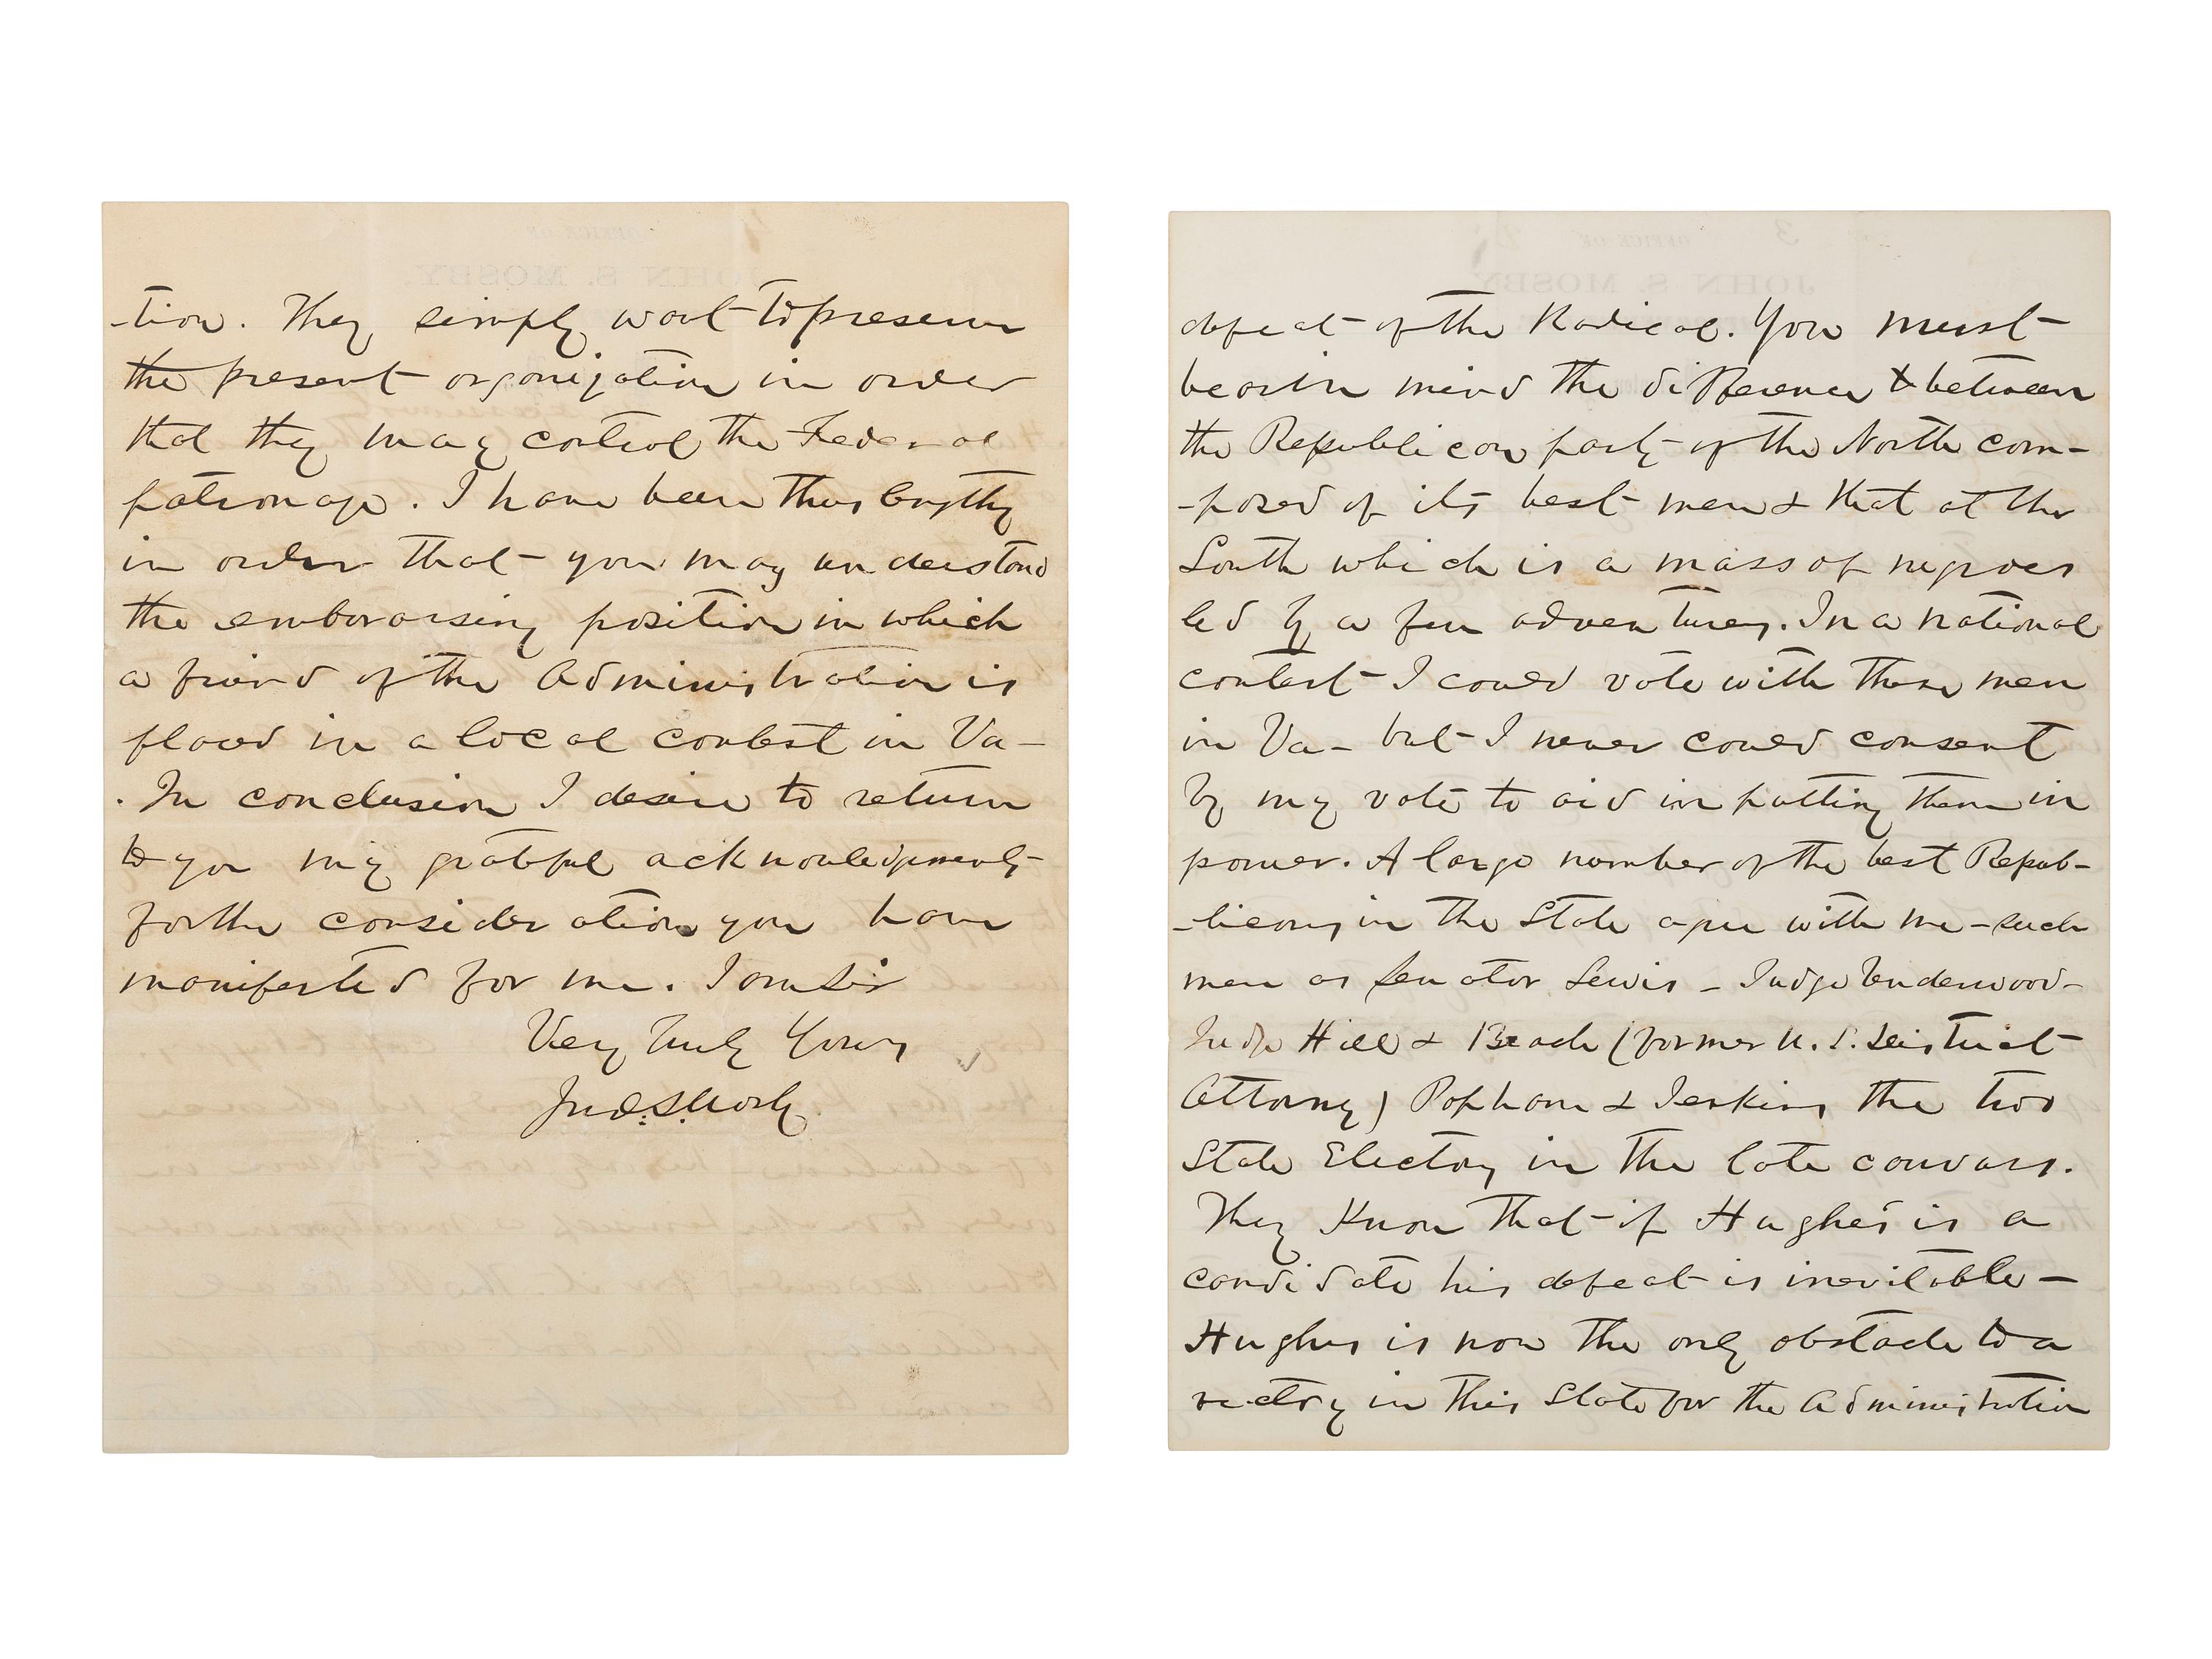 -tion. They simply want to preserve
the present organization in order
that they may control the Federal
patronage. I have been thus lengthy
in order that you may understand
the embarassing position in which
a friend of the Administration is
placed in a local contest in Va-
. In conclusion I desire to return
to you my grateful acknowledgments
for the consideration you have
manifested for me. I am Sir
Very truly Yours
Jno. S. Mosby
OFFICE OF
JOHN S. MOSBY
defeat of the Radical. You must
bear in mind the difference between
the Republican party of the North com-
-posed of its best men & that at the
South which is a mass of negroes
led by a few adventurers. In a national
contest I could vote with these men
in Va- but I never could consent
by my vote to aid in putting them in
power. A large number of the best Repub-
-licans in the State agree with me - such
men as Senator Lewis - Judge Underwood -
Judge Hill & Beach (former U.S. District
Attorney) Popham & Jenkins the two
State Electors in the late canvass.
They Know that if Hughes is a
candidate his defeat is inevitable -
Hughes is now the only obstacle to a
victory in this State for the Administration